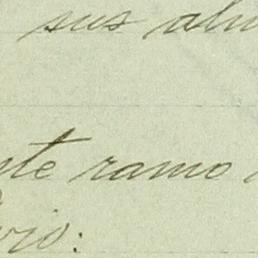 sus alu
nte ramo
vio: